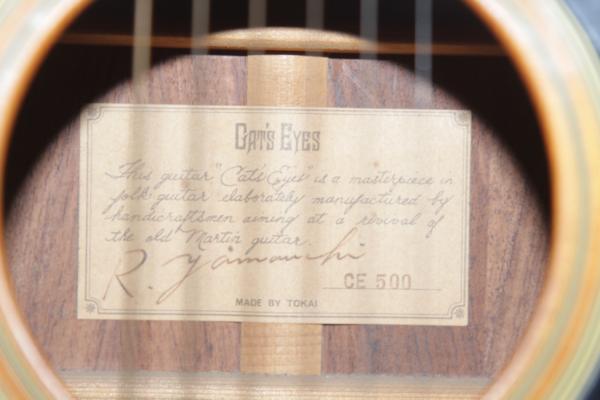 CAT'S EYES
This guitar "Cat's Eyes" is a masterpiece in
folk guitar elaborately manufactured by
handicraftsmen aiming at a revival of
the old Martin guitar.
R. Yamauchi
CE 500
MADE BY TOKAI